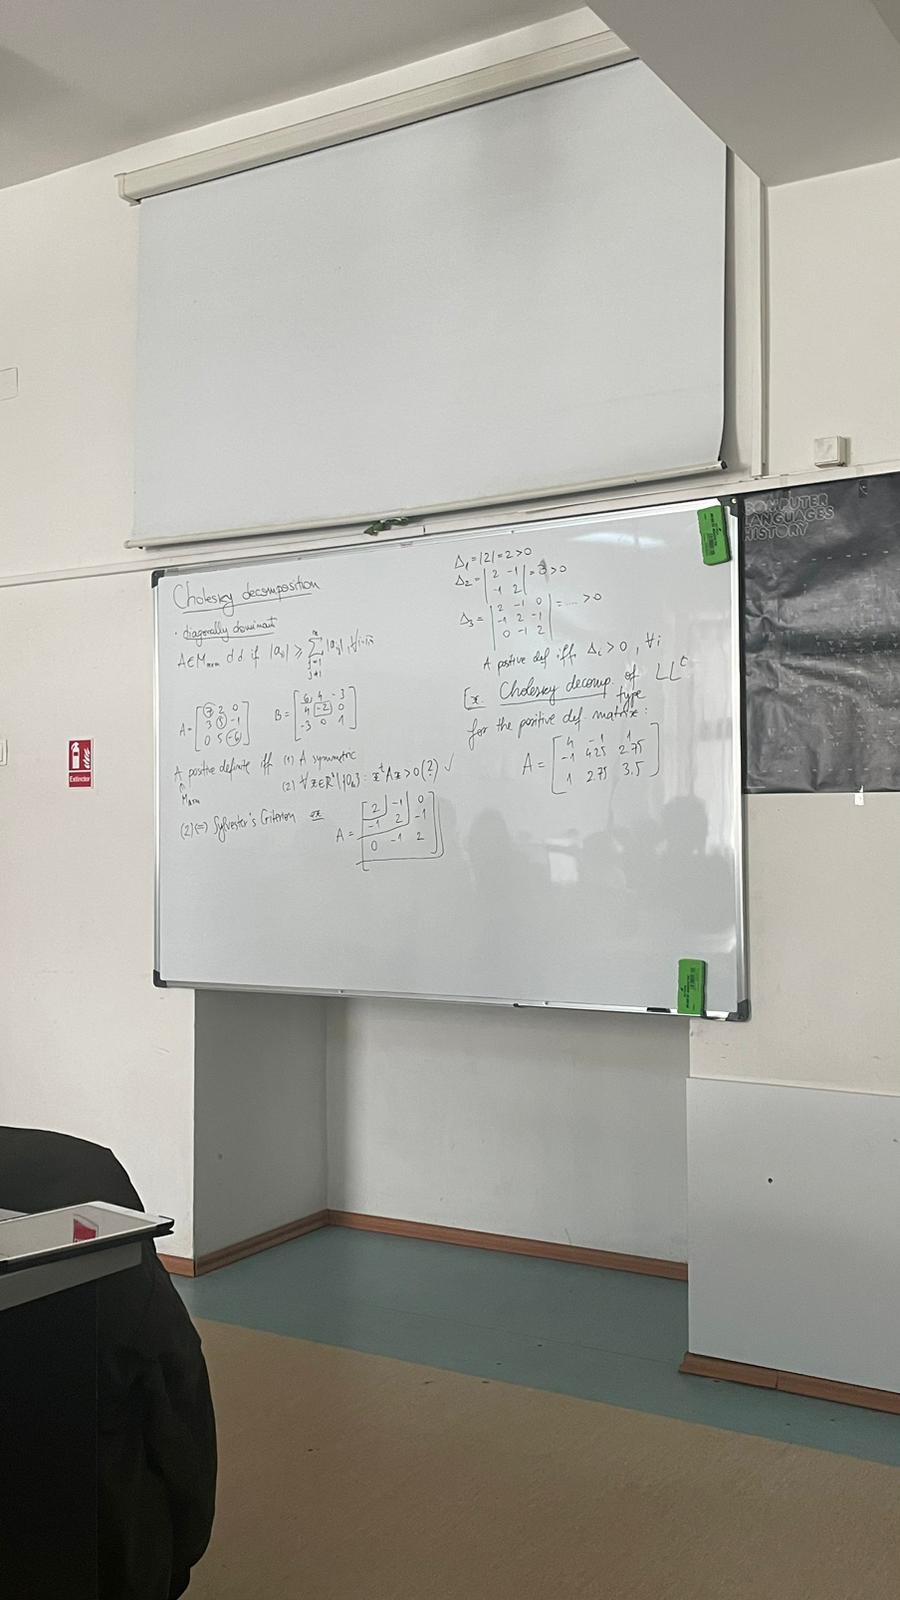 Cholesky decomposition
• diagonally dominant
A∈M_{n×n} d d if |a_{ii}| > \sum_{j=1, j≠i}^{n} |a_{ij}|, ∀i=1,n
A = [7 2 0; 3 5 -1; 0 5 -6] B = [6 4 -3; 4 -2 0; -3 0 1]
A positive definite iff (1) A symmetric
M_{n×n} (2) ∀x∈R^n\{0_n} : x^t A x > 0 (?) ✓
(2)⇔ Sylvester's Criterion ex
A = [2 -1 0; -1 2 -1; 0 -1 2]
Δ₁ = |2| = 2 > 0
Δ₂ = |2 -1; -1 2| = 3 > 0
Δ₃ = |2 -1 0; -1 2 -1; 0 -1 2| = .... > 0
A positive def iff Δᵢ > 0, ∀i
Ex. Cholesky decomp. of LL^t
type
for the positive def. matrix:
A = [4 -1 1; -1 4.25 2.75; 1 2.75 3.5]
COMPUTER
LANGUAGES
HISTORY
Extinctor